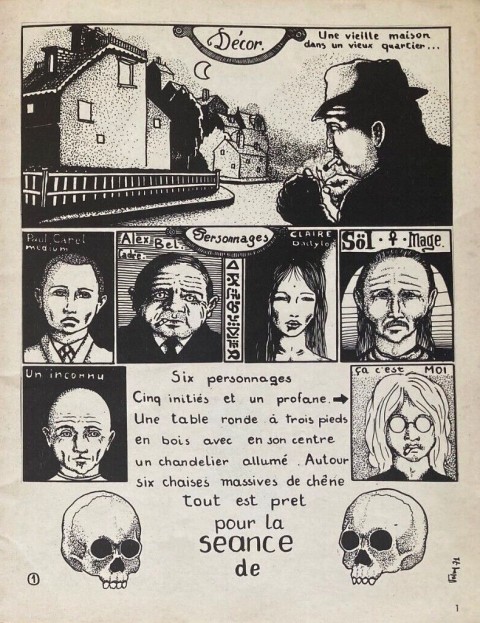 Décor.
Une vieille maison
dans un vieux quartier...
Personnages
Paul Carel
medium
Alex
Bel.
CLAIRE
Dactylo
Söl ♀ Mage.
Un inconnu
ça c'est MOI
Six personnages
Cinq initiés et un profane.
Une table ronde à trois pieds
en bois avec en son centre
un chandelier allumé. Autour
six chaises massives de chêne
Tout est pret
pour la
SEANCE
de
1
1